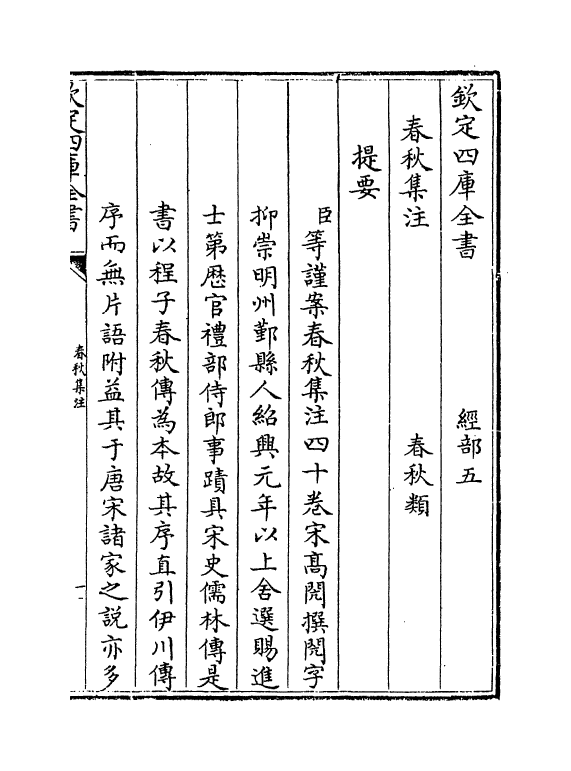 欽定四庫全書　經部五
春秋集注　春秋類
提要
臣等謹案春秋集注四十卷宋髙閌撰閌字
抑崇明州鄞縣人紹興元年以上舍選賜進
士第歴官禮部侍郎事蹟具宋史儒林傳是
書以程子春秋傳為本故其序直引伊川傳
序而無片語附益其于唐宋諸家之説亦多
欽定四庫全書
春秋集注
一